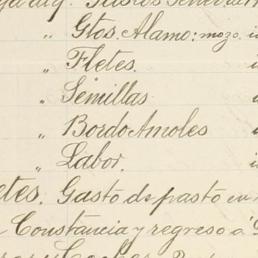 " Gtos. Alamo: mozo. i
" Fletes. i
" Semillas i
" Bordo Amoles i
" Labor. i
etes. Gasto de pasto en
Constancia y regreso a